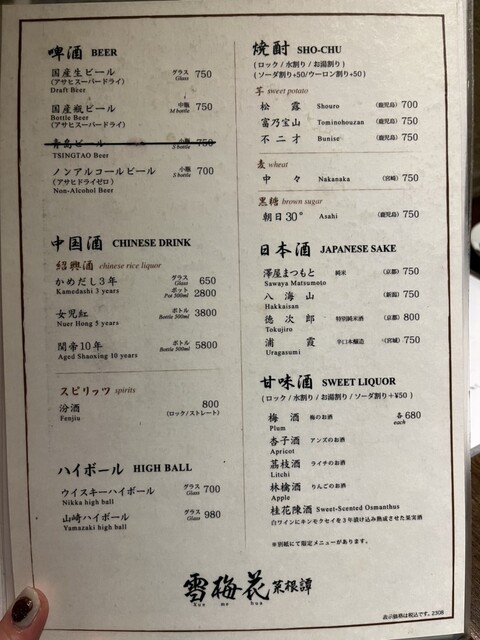 啤酒 BEER
国産生ビール グラス Glass 750
(アサヒスーパードライ)
Draft Beer
国産瓶ビール 中瓶 M bottle 750
Bottle Beer
(アサヒスーパードライ)
青島ビール 小瓶 S bottle 750
TSINGTAO Beer
ノンアルコールビール 小瓶 S bottle 700
(アサヒドライゼロ)
Non-Alcohol Beer
中国酒 CHINESE DRINK
紹興酒 chinese rice liquor
かめだし3年 グラス Glass 650
Kamedashi 3 years ポット Pot 300ml 2800
女児紅 ボトル Bottle 500ml 3800
Nuer Hong 5 years
関帝10年 ボトル Bottle 500ml 5800
Aged Shaoxing 10 years
スピリッツ spirits
汾酒 800
Fenjiu (ロック/ストレート)
ハイボール HIGH BALL
ウイスキーハイボール グラス Glass 700
Nikka high ball
山崎ハイボール グラス Glass 980
Yamazaki high ball
焼酎 SHO-CHU
(ロック/水割り/お湯割り)
(ソーダ割り+50/ウーロン割り+50)
芋 sweet potato
松露 Shouro (鹿児島) 700
富乃宝山 Tominohouzan (鹿児島) 750
不二才 Bunise (鹿児島) 750
麦 wheat
中々 Nakanaka (宮崎) 750
黒糖 brown sugar
朝日30° Asahi (鹿児島) 750
日本酒 JAPANESE SAKE
澤屋まつもと 純米 (京都) 750
Sawaya Matsumoto
八海山 (新潟) 750
Hakkaisan
徳次郎 特別純米酒 (京都) 800
Tokujiro
浦霞 辛口本醸造 (宮城) 750
Uragasumi
甘味酒 SWEET LIQUOR
(ロック/水割り/お湯割り/ソーダ割り+¥50)
梅酒 梅のお酒 各 each 680
Plum
杏子酒 アンズのお酒
Apricot
茘枝酒 ライチのお酒
Litchi
林檎酒 りんごのお酒
Apple
桂花陳酒 Sweet-Scented Osmanthus
白ワインにキンモクセイを3年漬け込み熟成させた果実酒
※別紙にて限定メニューがあります。
雪梅花 菜根譚
Xue me hua
表示価格は税込です。2508